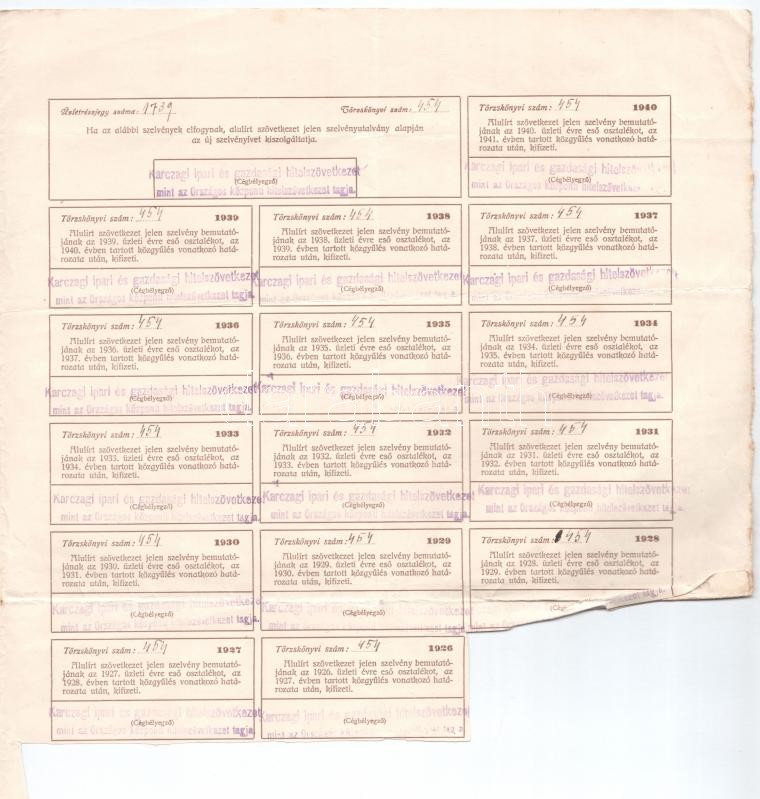 Üzletrészjegy száma: 1739 Törzskönyvi szám: 454
Ha az alábbi szelvények elfogynak, alulírt szövetkezet jelen szelvényutalvány alapján
az új szelvényívet kiszolgáltatja.
Karczagi ipari és gazdasági hitelszövetkezet
(Cégbélyegző)
mint az Országos központi hitelszövetkezet tagja.
Törzskönyvi szám: 454 1940
Alulírt szövetkezet jelen szelvény bemutató-
jának az 1940. üzleti évre eső osztalékot, az
1941. évben tartott közgyűlés vonatkozó hatá-
rozata után, kifizeti.
Karczagi ipari és gazdasági hitelszöv
(Cégbélyegző)
mint az Országos központi hitelszövetkezet
Törzskönyvi szám: 454 1939
Alulírt szövetkezet jelen szelvény bemutató-
jának az 1939. üzleti évre eső osztalékot, az
1940. évben tartott közgyűlés vonatkozó hatá-
rozata után, kifizeti.
Karczagi ipari és gazdasági hitelszövetkezet
(Cégbélyegző)
mint az Országos központi hitelszövetkezet tagja.
Törzskönyvi szám: 454 1938
Alulírt szövetkezet jelen szelvény bemutató-
jának az 1938. üzleti évre eső osztalékot, az
1939. évben tartott közgyűlés vonatkozó hatá-
rozata után, kifizeti.
Karczagi ipari és gazdasági hitelszövetkezet
(Cégbélyegző)
mint az Országos központi hitelszövetkezet tagja.
Törzskönyvi szám: 454 1937
Alulírt szövetkezet jelen szelvény bemutató-
jának az 1937. üzleti évre eső osztalékot, az
1938. évben tartott közgyűlés vonatkozó hatá-
rozata után, kifizeti.
Karczagi ipari és gazdasági hitelszövetkezet
(Cégbélyegző)
mint az Országos központi hitelszövetkezet tagja.
Törzskönyvi szám: 454 1936
Alulírt szövetkezet jelen szelvény bemutató-
jának az 1936. üzleti évre eső osztalékot, az
1937. évben tartott közgyűlés vonatkozó hatá-
rozata után, kifizeti.
Karczagi ipari és gazdasági hitelszövetkezet
(Cégbélyegző)
mint az Országos központi hitelszövetkezet tagja.
Törzskönyvi szám: 454 1935
Alulírt szövetkezet jelen szelvény bemutató-
jának az 1935. üzleti évre eső osztalékot, az
1936. évben tartott közgyűlés vonatkozó hatá-
rozata után, kifizeti.
Karczagi ipari és gazdasági hitelszövetkezet
(Cégbélyegző)
mint az Országos központi hitelszövetkezet tagja.
Törzskönyvi szám: 454 1934
Alulírt szövetkezet jelen szelvény bemutató-
jának az 1934. üzleti évre eső osztalékot, az
1935. évben tartott közgyűlés vonatkozó hatá-
rozata után, kifizeti.
Karczagi ipari és gazdasági hitelszövetkezet
(Cégbélyegző)
mint az Országos központi hitelszövetkezet tagja.
Törzskönyvi szám: 454 1933
Alulírt szövetkezet jelen szelvény bemutató-
jának az 1933. üzleti évre eső osztalékot, az
1934. évben tartott közgyűlés vonatkozó hatá-
rozata után, kifizeti.
Karczagi ipari és gazdasági hitelszövetkezet
(Cégbélyegző)
mint az Országos központi hitelszövetkezet tagja.
Törzskönyvi szám: 454 1932
Alulírt szövetkezet jelen szelvény bemutató-
jának az 1932. üzleti évre eső osztalékot, az
1933. évben tartott közgyűlés vonatkozó hatá-
rozata után, kifizeti.
Karczagi ipari és gazdasági hitelszövetkezet
(Cégbélyegző)
mint az Országos központi hitelszövetkezet tagja.
Törzskönyvi szám: 454 1931
Alulírt szövetkezet jelen szelvény bemutató-
jának az 1931. üzleti évre eső osztalékot, az
1932. évben tartott közgyűlés vonatkozó hatá-
rozata után, kifizeti.
Karczagi ipari és gazdasági hitelszövetkezet
(Cégbélyegző)
mint az Országos központi hitelszövetkezet tagja.
Törzskönyvi szám: 454 1930
Alulírt szövetkezet jelen szelvény bemutató-
jának az 1930. üzleti évre eső osztalékot, az
1931. évben tartott közgyűlés vonatkozó hatá-
rozata után, kifizeti.
Karczagi ipari és gazdasági hitelszövetkezet
(Cégbélyegző)
mint az Országos központi hitelszövetkezet tagja.
Törzskönyvi szám: 454 1929
Alulírt szövetkezet jelen szelvény bemutató-
jának az 1929. üzleti évre eső osztalékot, az
1930. évben tartott közgyűlés vonatkozó hatá-
rozata után, kifizeti.
Karczagi ipari és gazdasági hitelszövetkezet
(Cégbélyegző)
mint az Országos központi hitelszövetkezet tagja.
Törzskönyvi szám: 454 1928
Alulírt szövetkezet jelen szelvény bemutató-
jának az 1928. üzleti évre eső osztalékot, az
1929. évben tartott közgyűlés vonatkozó hatá-
rozata után, kifizeti.
(Cég
tagja.
Törzskönyvi szám: 454 1927
Alulírt szövetkezet jelen szelvény bemutató-
jának az 1927. üzleti évre eső osztalékot, az
1928. évben tartott közgyűlés vonatkozó hatá-
rozata után, kifizeti.
Karczagi ipari és gazdasági hitelszövetkezet
(Cégbélyegző)
mint az Országos központi hitelszövetkezet tagja.
Törzskönyvi szám: 454 1926
Alulírt szövetkezet jelen szelvény bemutató-
jának az 1926. üzleti évre eső osztalékot, az
1927. évben tartott közgyűlés vonatkozó hatá-
rozata után, kifizeti.
Karczagi ipari és gazdasági hitelszövetkezet
(Cégbélyegző)
mint az Országos központi hitelszövetkezet tag a